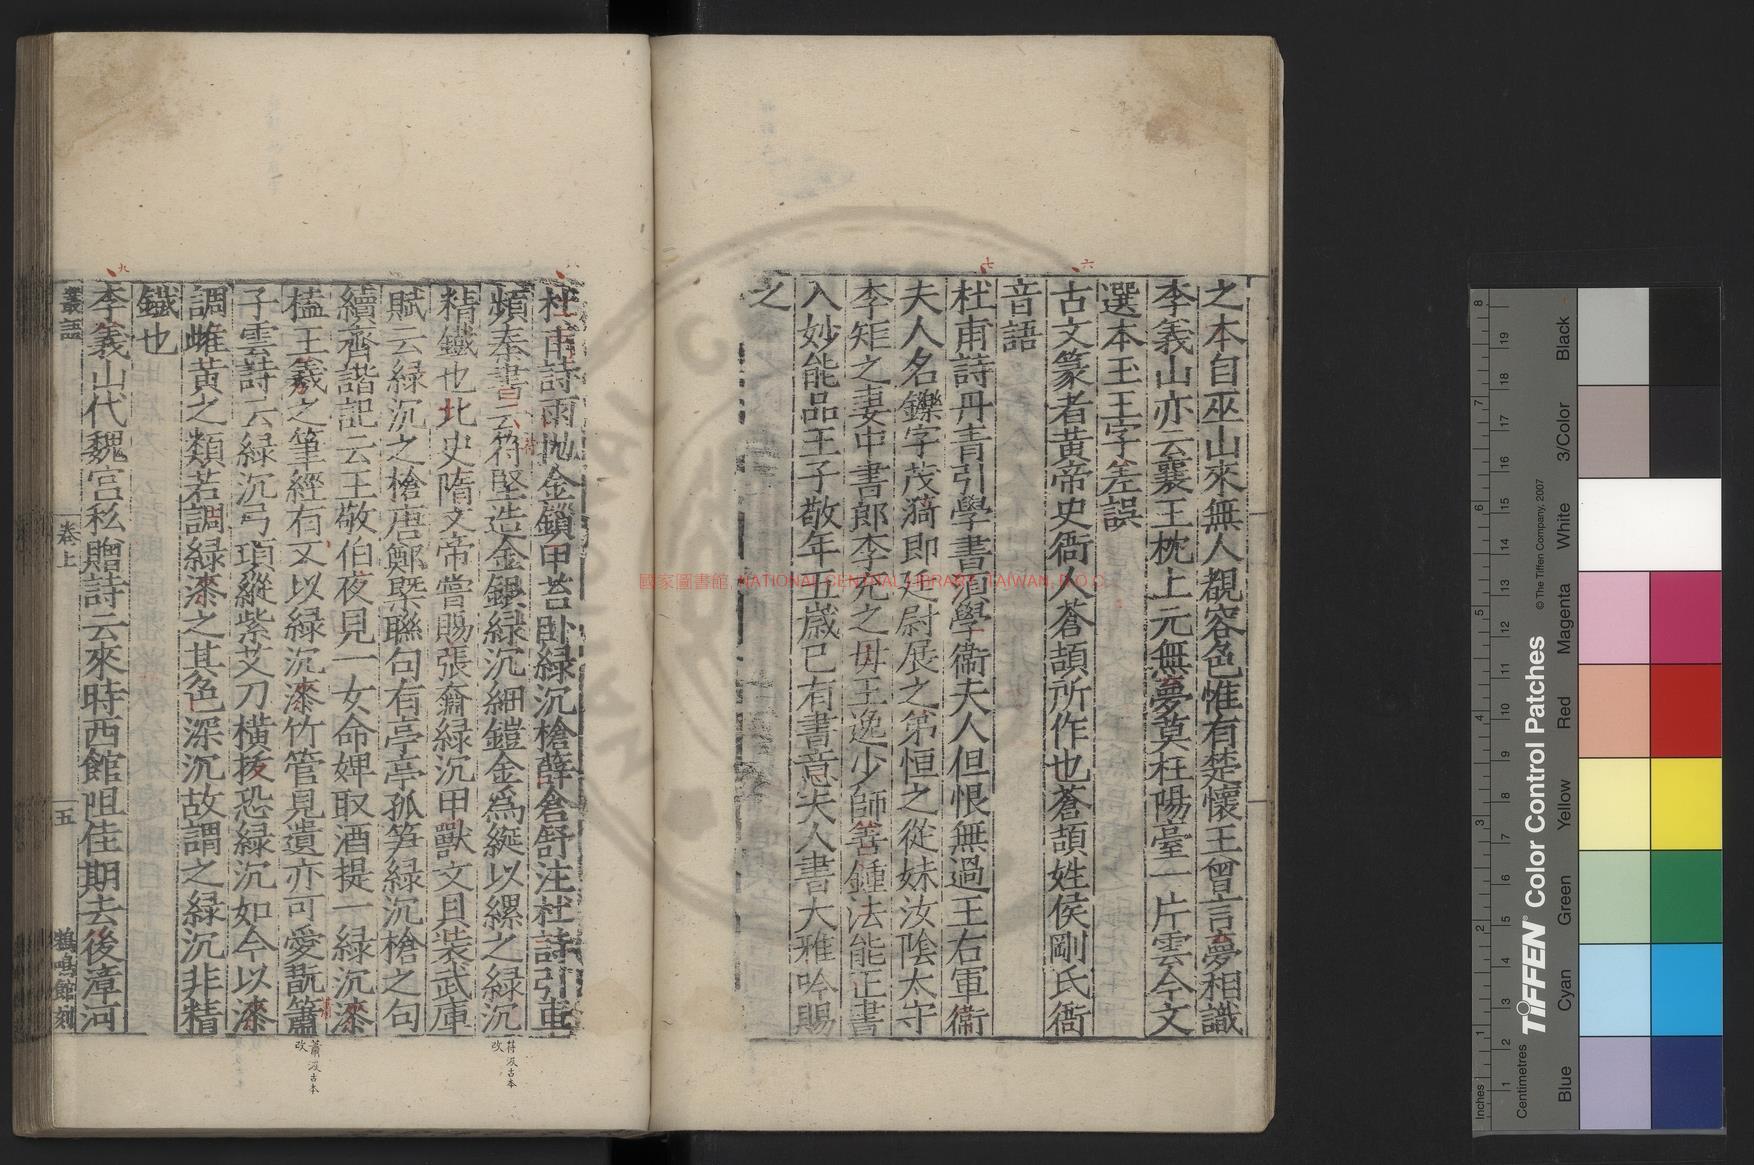 之本自巫山來無人覩容色惟有楚懷王曾言夢相識
李義山亦云襄王枕上元無夢莫枉陽臺一片雲今文
選本玉王字差誤
古文篆者黃帝史衙人蒼頡所作也蒼頡姓侯剛氏衙
音語
杜甫詩丹青引學書須學衞夫人但恨無過王右軍衞
夫人名鑠字茂漪即廷尉展之弟恒之從妹汝陰太守
李矩之妻中書郎李充之母王逸少師善鍾法能正書
入妙能品王子敬年五歲已有書意夫人書大雅吟賜
之
六
七
杜甫詩雨拋金鎖甲苔卧綠沉槍薛倉舒注杜詩引車
頻秦書云符堅造金銀綠沉細鎧金爲綖以縲之綠沉
精鐵也北史隋文帝嘗賜張奫綠沉甲獸文具裝武庫
賦云綠沉之槍唐鄭槩聯句有亭亭孤笋綠沉槍之句
續齊諧記云王敬伯夜見一女命婢取酒提一綠沉漆
榼王羲之筆經有人以綠沉漆竹管見遺亦可愛翫簫
子雲詩云綠沉弓項縱紫艾刀橫拔恐綠沉如今以漆
調雌黃之類若調綠漆之其色深沉故謂之綠沉非精
鐵也
李義山代魏宮私贈詩云來時西館阻佳期去後漳河
叢語
卷上
五
鶴鳴館刻
八
九
苻
蕭
苻汲古本
改
蕭汲古本
改
國家圖書館 NATIONAL CENTRAL LIBRARY, TAIWAN, R.O.C
TIFFEN® Color Control Patches
© The Tiffen Company, 2007
Centimetres
Inches
Blue Cyan Green Yellow Red Magenta White 3/Color Black